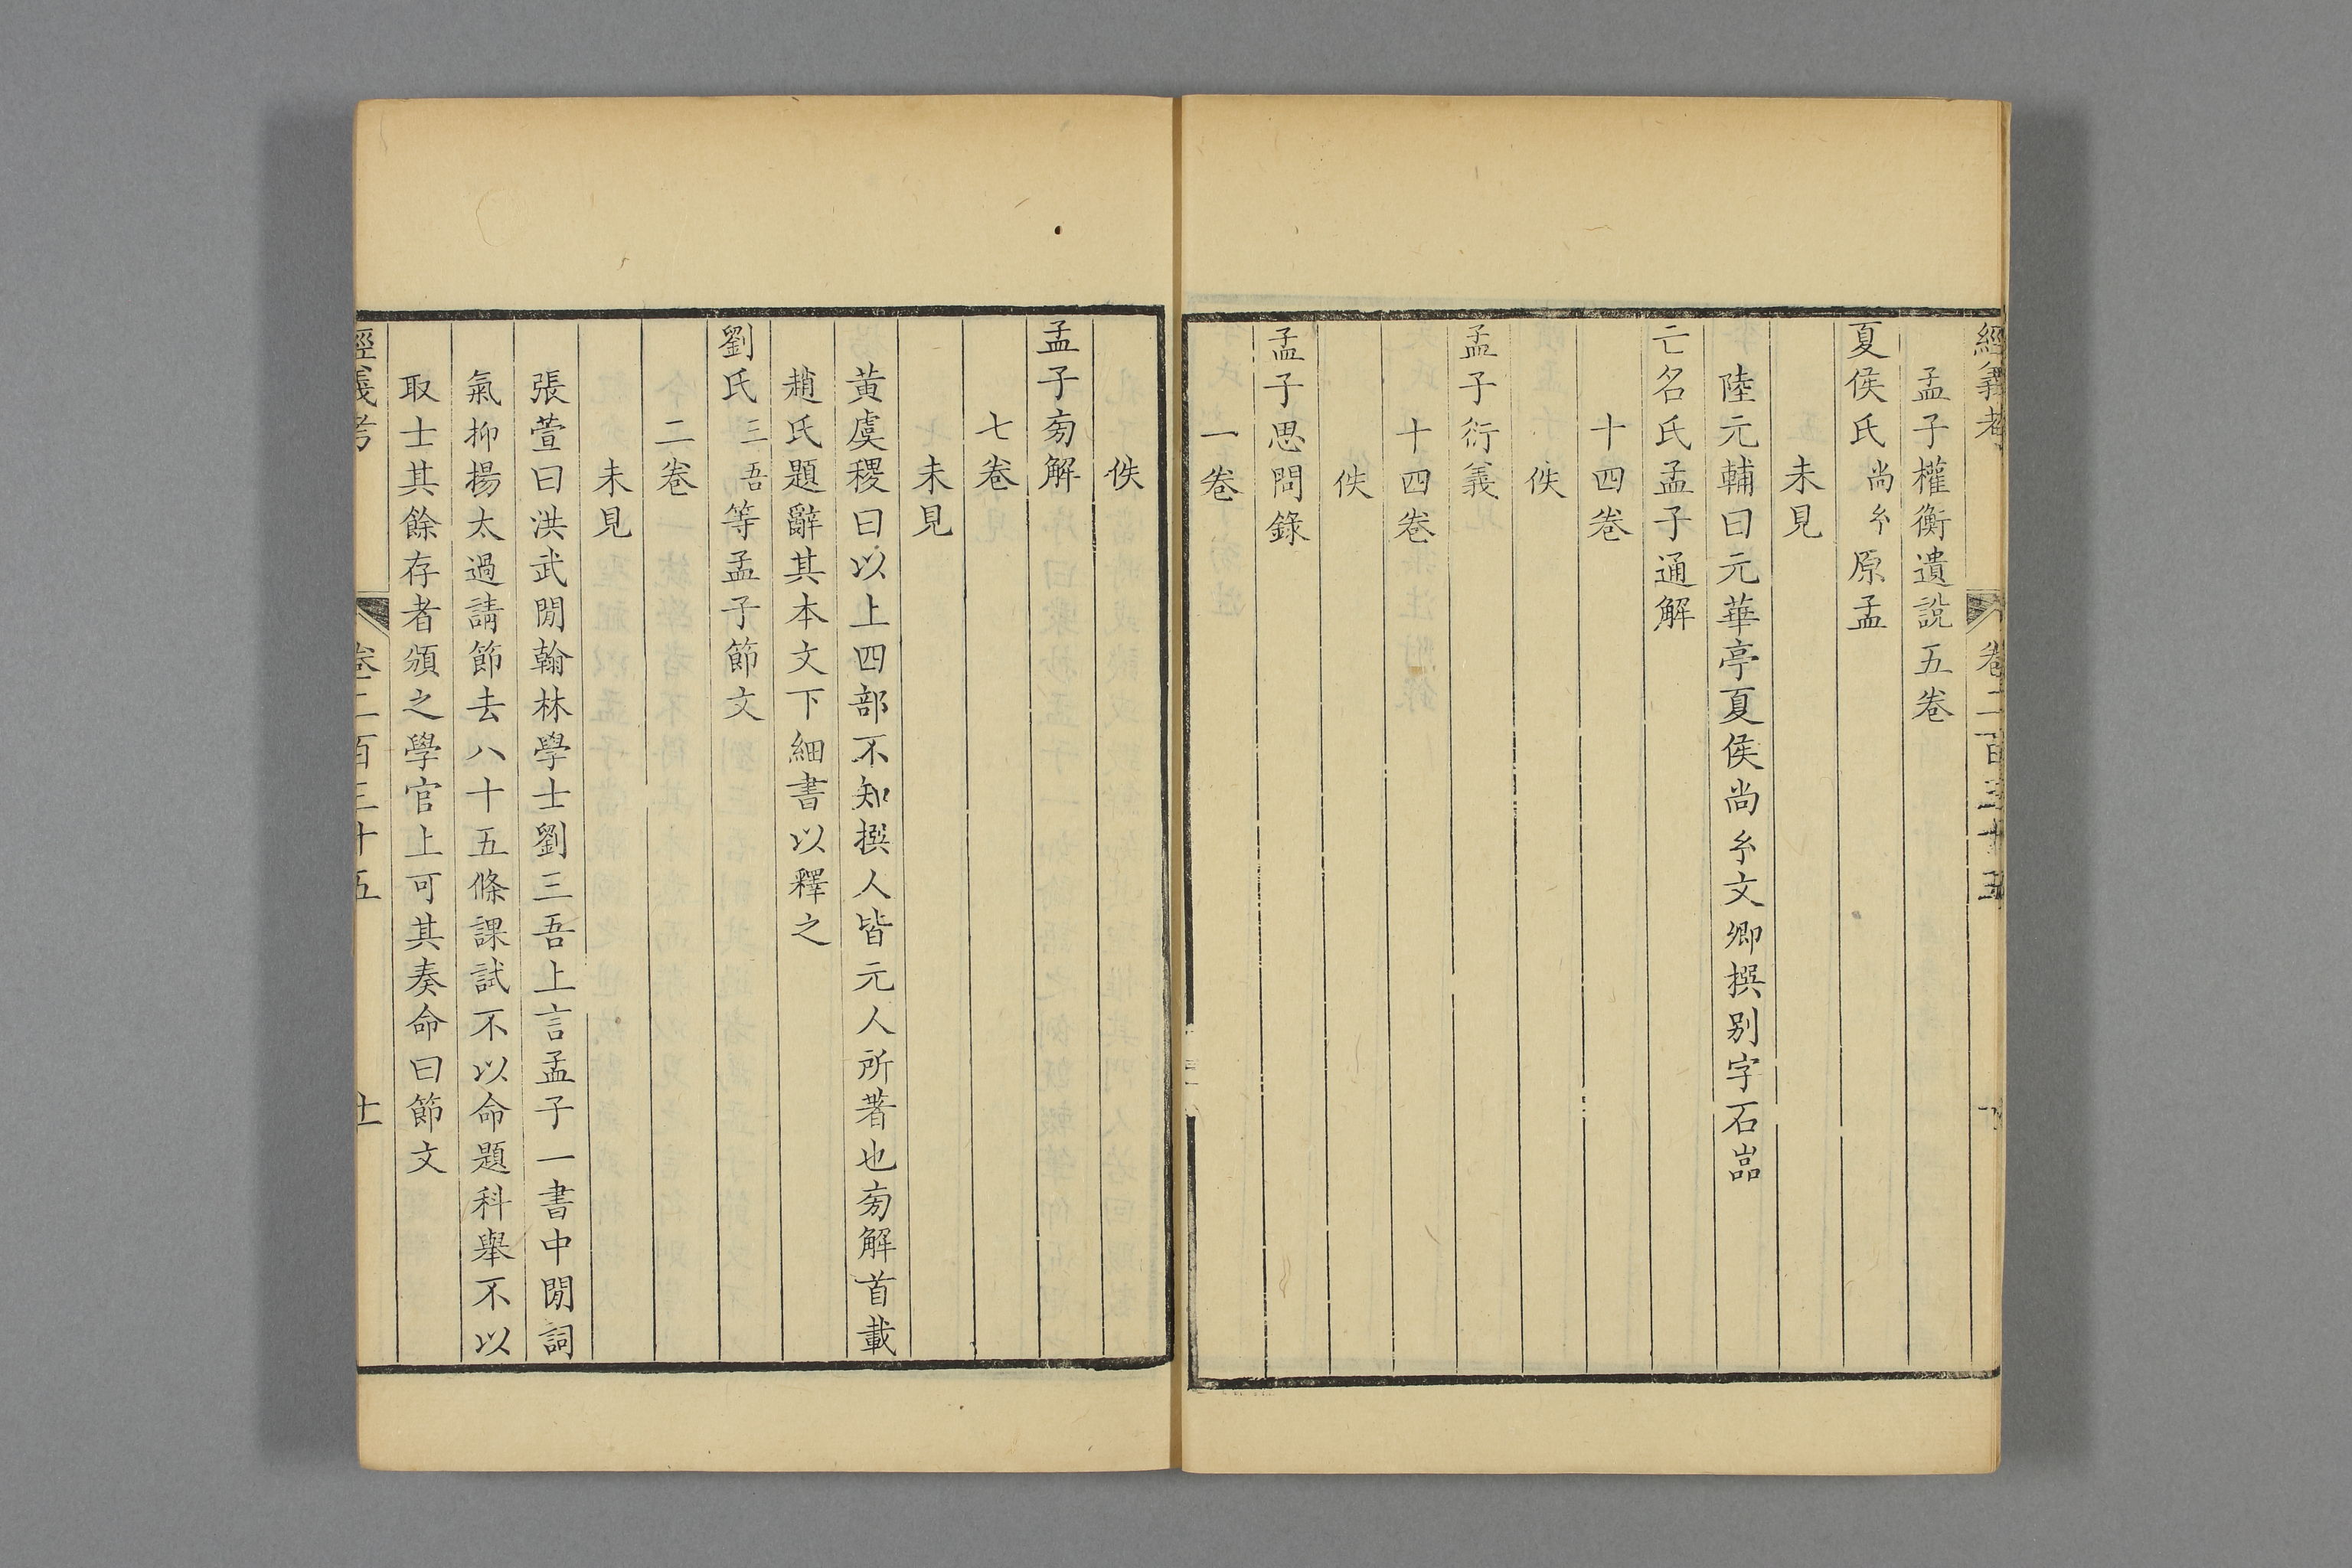 經義考 卷二百三十五
孟子權衡遺說五卷
夏侯氏尚玄原孟
未見
陸元輔曰元華亭夏侯尚玄文卿撰别字石嵓
亡名氏孟子通解
十四卷
佚
孟子衍義
十四卷
佚
孟子思問錄
一卷
佚
孟子旁解
七卷
未見
黃虞稷曰以上四部不知撰人皆元人所著也旁解首載
趙氏題辭其本文下細書以釋之
劉氏三吾等孟子節文
二卷
未見
張萱曰洪武閒翰林學士劉三吾上言孟子一書中閒詞
氣抑揚太過請節去八十五條課試不以命題科舉不以
取士其餘存者頒之學官上可其奏命曰節文
經義考 卷二百三十五